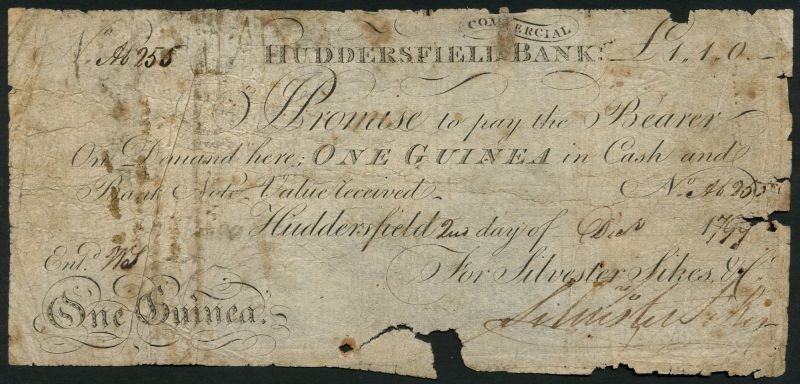 COMMERCIAL
No. Ab 255 HUDDERSFIELD BANK. £1.1.0.
I Promise to pay the Bearer
On Demand here; ONE GUINEA in Cash and
Bank Note Value received. No. Ab 255
Huddersfield 2nd day of Decr 1797
Entd. WS For Silvester Sikes, & Co.
One Guinea. Silvester Sikes